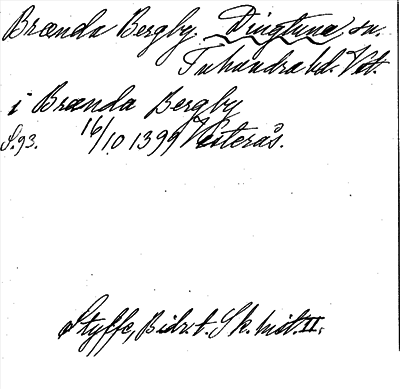 Brænda Bergby. Dingtuna sn.
Tuhundra hd. Vstm.
i Brænda Bergby
S. 93. 16/10 1399 Västerås.
Styffe, Bidr. t. Sk. hist. II.